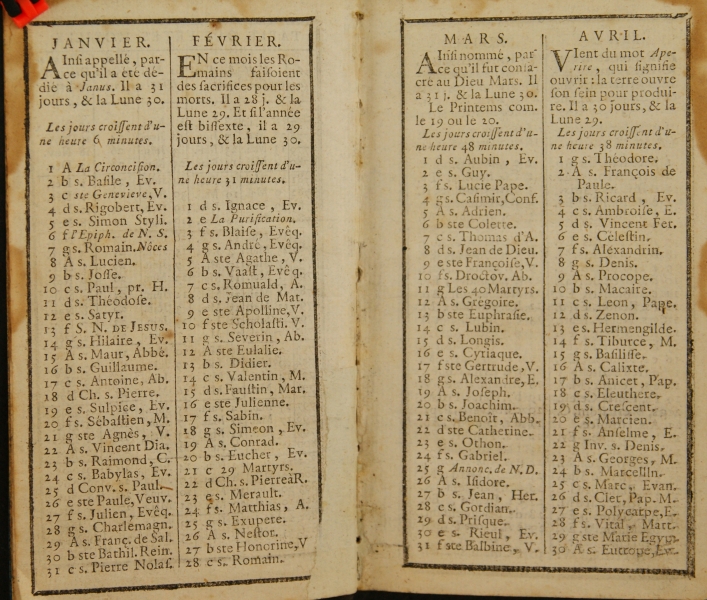 JANVIER.
AInsi appellé, par-
ce qu'il a été dé-
dié à Janus. Il a 31
jours, & la Lune 30.
Les jours croissent d'u-
ne heure 6 minutes.
1 A La Circoncision.
2 b s. Basile, Ev.
3 c ste Genevieve, V.
4 d s. Rigobert, Ev.
5 e s. Simeon Styli.
6 f l'Epiph. de N. S.
7 g s. Romain. Nôces
8 A s. Lucien.
9 b s. Josse.
10 c s. Paul, pr. H.
11 d s. Théodose.
12 e s. Satyr.
13 f S. N. DE JESUS.
14 g s. Hilaire, Ev.
15 A s. Maur, Abbé.
16 b s. Guillaume.
17 c s. Antoine, Ab.
18 d Ch. s. Pierre.
19 e s. Sulpice, Ev.
20 f s. Sébastien, M.
21 g ste Agnès, V.
22 A s. Vincent Dia.
23 b s. Raimond, C.
24 c s. Babylas, Ev.
25 d Conv. s. Paul.
26 e ste Paule, Veuv.
27 f s. Julien, Evêq.
28 g s. Charlemagn.
29 A s. Franç. de Sal.
30 b ste Bathil. Rein.
31 c s. Pierre Nolas.
FÉVRIER.
EN ce mois les Ro-
mains faisoient
des sacrifices pour les
morts. Il a 28 j. & la
Lune 29. Et si l'année
est bissexte, il a 29
jours, & la Lune 30.
Les jours croissent d'u-
ne heure 31 minutes.
1 d s. Ignace, Ev.
2 e La Purification.
3 f s. Blaise, Evêq.
4 g s. André, Evêq.
5 A ste Agathe, V.
6 b s. Vaast, Evêq.
7 c s. Romuald, A.
8 d s. Jean de Mat.
9 e ste Apolline, V.
10 f ste Scholasti. V.
11 g s. Severin, Ab.
12 A ste Eulalie.
13 b s. Didier.
14 c s. Valentin, M.
15 d s. Faustin, Mar.
16 e ste Julienne.
17 f s. Sabin.
18 g s. Simeon, Ev.
19 A s. Conrad.
20 b s. Eucher, Ev.
21 c 29 Martyrs.
22 d Ch. s. Pierre à R.
23 e s. Merault.
24 f s. Matthias, A.
25 g s. Exupere.
26 A s. Nestor.
27 b ste Honorine, V
28 c s. Romain.
MARS.
AInsi nommé, par
ce qu'il fut consa-
cré au Dieu Mars. Il
a 31 j. & la Lune 30.
Le Printems com.
le 19 ou le 20.
Les jours croissent d'u-
ne heure 48 minutes.
1 d s. Aubin, Ev.
2 e s. Guy.
3 f s. Lucie Pape.
4 g s. Casimir, Conf.
5 A s. Adrien.
6 b ste Colette.
7 c s. Thomas d'A.
8 d s. Jean de Dieu.
9 e ste Françoise, V.
10 f s. Droctov. Ab.
11 g Les 40 Martyrs.
12 A s. Grégoire.
13 b ste Euphrasie.
14 c s. Lubin.
15 d s. Longis.
16 e s. Cyriaque.
17 f ste Gertrude, V.
18 g s. Alexandre, E.
19 A s. Joseph.
20 b s. Joachim.
21 c s. Benoît, Abb.
22 d ste Catherine.
23 e s. Othon.
24 f s. Gabriel.
25 g Annonc. de N. D.
26 A s. Isidore.
27 b s. Jean, Her.
28 c s. Gordian.
29 d s. Prisque.
30 e s. Rieul, Ev.
31 f ste Balbine, V.
AVRIL.
VIent du mot Ape-
rire, qui signifie
ouvrir : la terre ouvre
son sein pour produi-
re. Il a 30 jours, & la
Lune 29.
Les jours croissent d'u-
ne heure 38 minutes.
1 g s. Théodore.
2 A s. François de
Paule.
3 b s. Ricard, Ev.
4 c s. Ambroise, E.
5 d s. Vincent Fer.
6 e s. Célestin.
7 f s. Alexandrin.
8 g s. Denis.
9 A s. Procope.
10 b s. Macaire.
11 c s. Leon, Pape.
12 d s. Zenon.
13 e s. Hermengilde.
14 f s. Tiburce, M.
15 g s. Basilisse.
16 A s. Calixte.
17 b s. Anicet, Pap.
18 c s. Eleuthere.
19 d s. Crescent.
20 e s. Marcien.
21 f s. Anselme, E.
22 g Inv. s. Denis.
23 A s. Georges, M.
24 b s. Marcellin.
25 c s. Marc, Evan.
26 d s. Clet, Pap. M.
27 e s. Polycarpe, E.
28 f s. Vital, Mart.
29 g ste Marie Egyp.
30 A s. Eutrope, Ev.